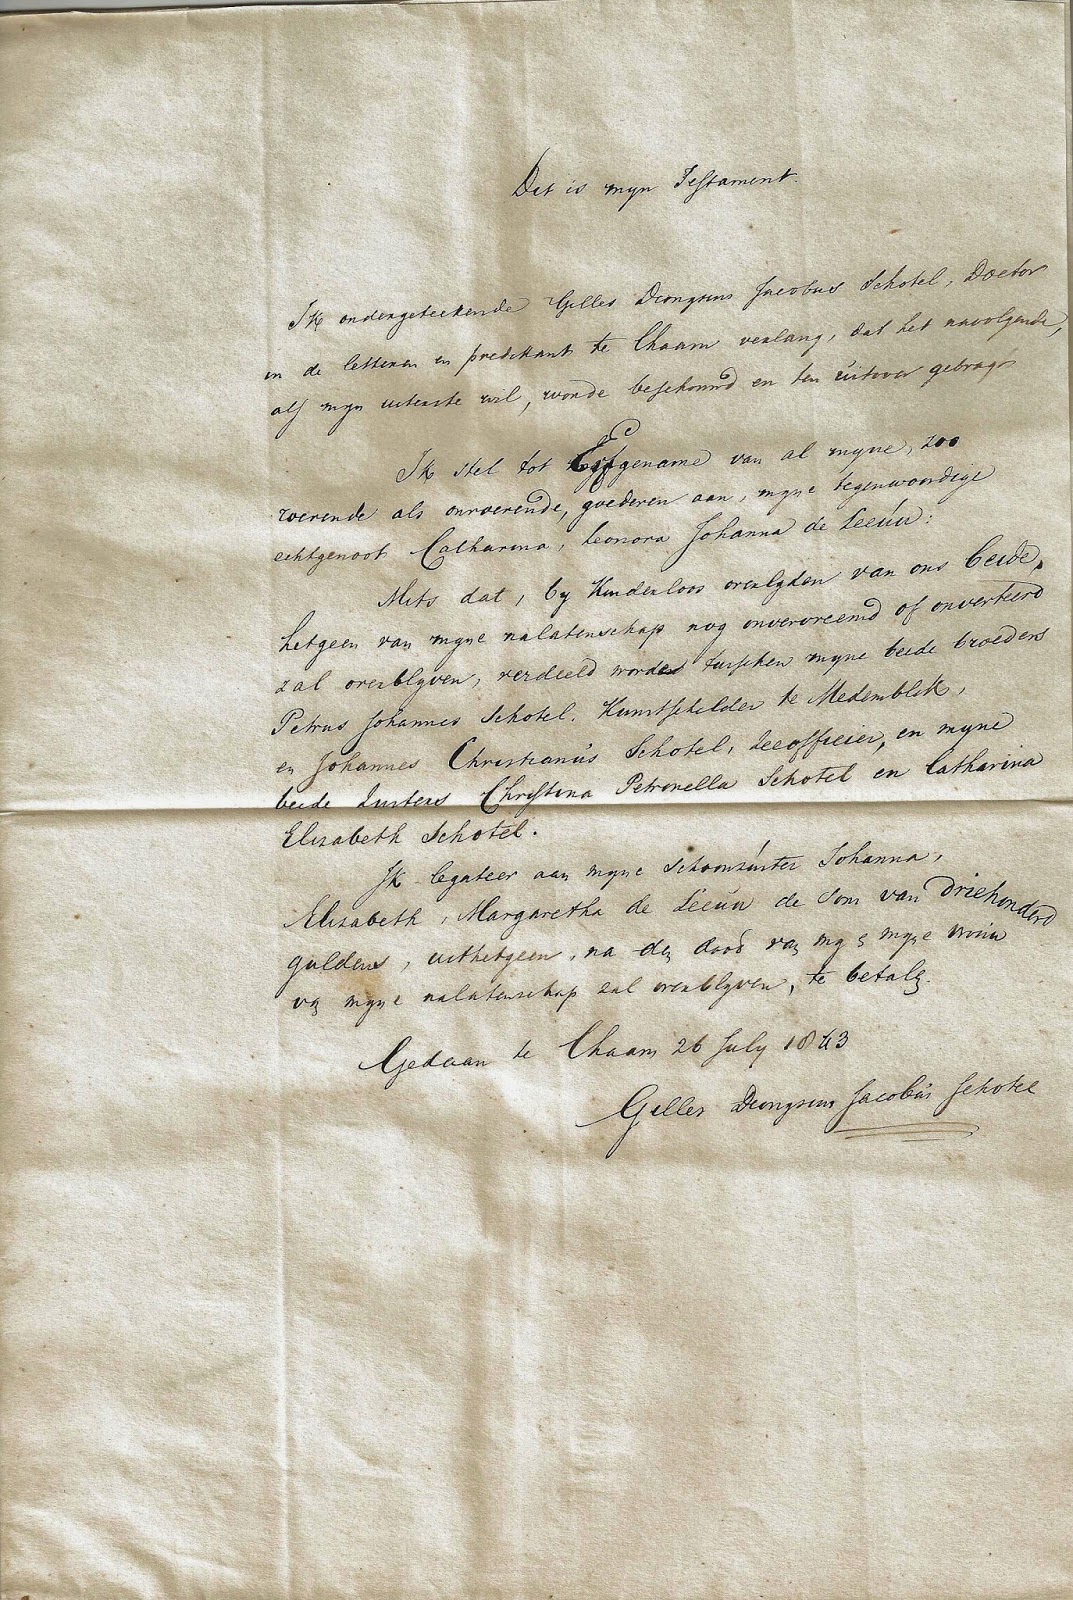 Dit is myn Testament.
Ik ondergeteekende Gilles Dionysius Jacobus Schotel, Doctor
in de letteren en predikant te Chaam verlang, dat het navolgende,
als myn uiterste wil, worde beschouwd en ten uitvoer gebragt
Ik stel tot Erfgename van al myne, zoo
roerende als onroerende, goederen aan, myne tegenwoordige
echtgenoot Catharina, Leonora Johanna de Leeuw:
Mits dat, by Kinderloos overlyden van ons beide,
hetgeen van myne nalatenschap nog onvervreemd of onverteerd
zal overblyven, verdeeld worde tusschen myne beide broeders
Petrus Johannes Schotel, Kunstschilder te Medemblik,
en Johannes Christianus Schotel, Zeeofficier, en myne
beide Zusters Christina Petronella Schotel en Catharina
Elisabeth Schotel.
Ik legateer aan myne schoonzuster Johanna,
Elisabeth, Margaretha de Leeuw de som van driehonderd
guldens, uit hetgeen, na den dood van my myne vrouw
van myne nalatenschap zal overblyven, te betalen.
Gedaan te Chaam 26 July 1843
Gilles Dionysius Jacobus Schotel